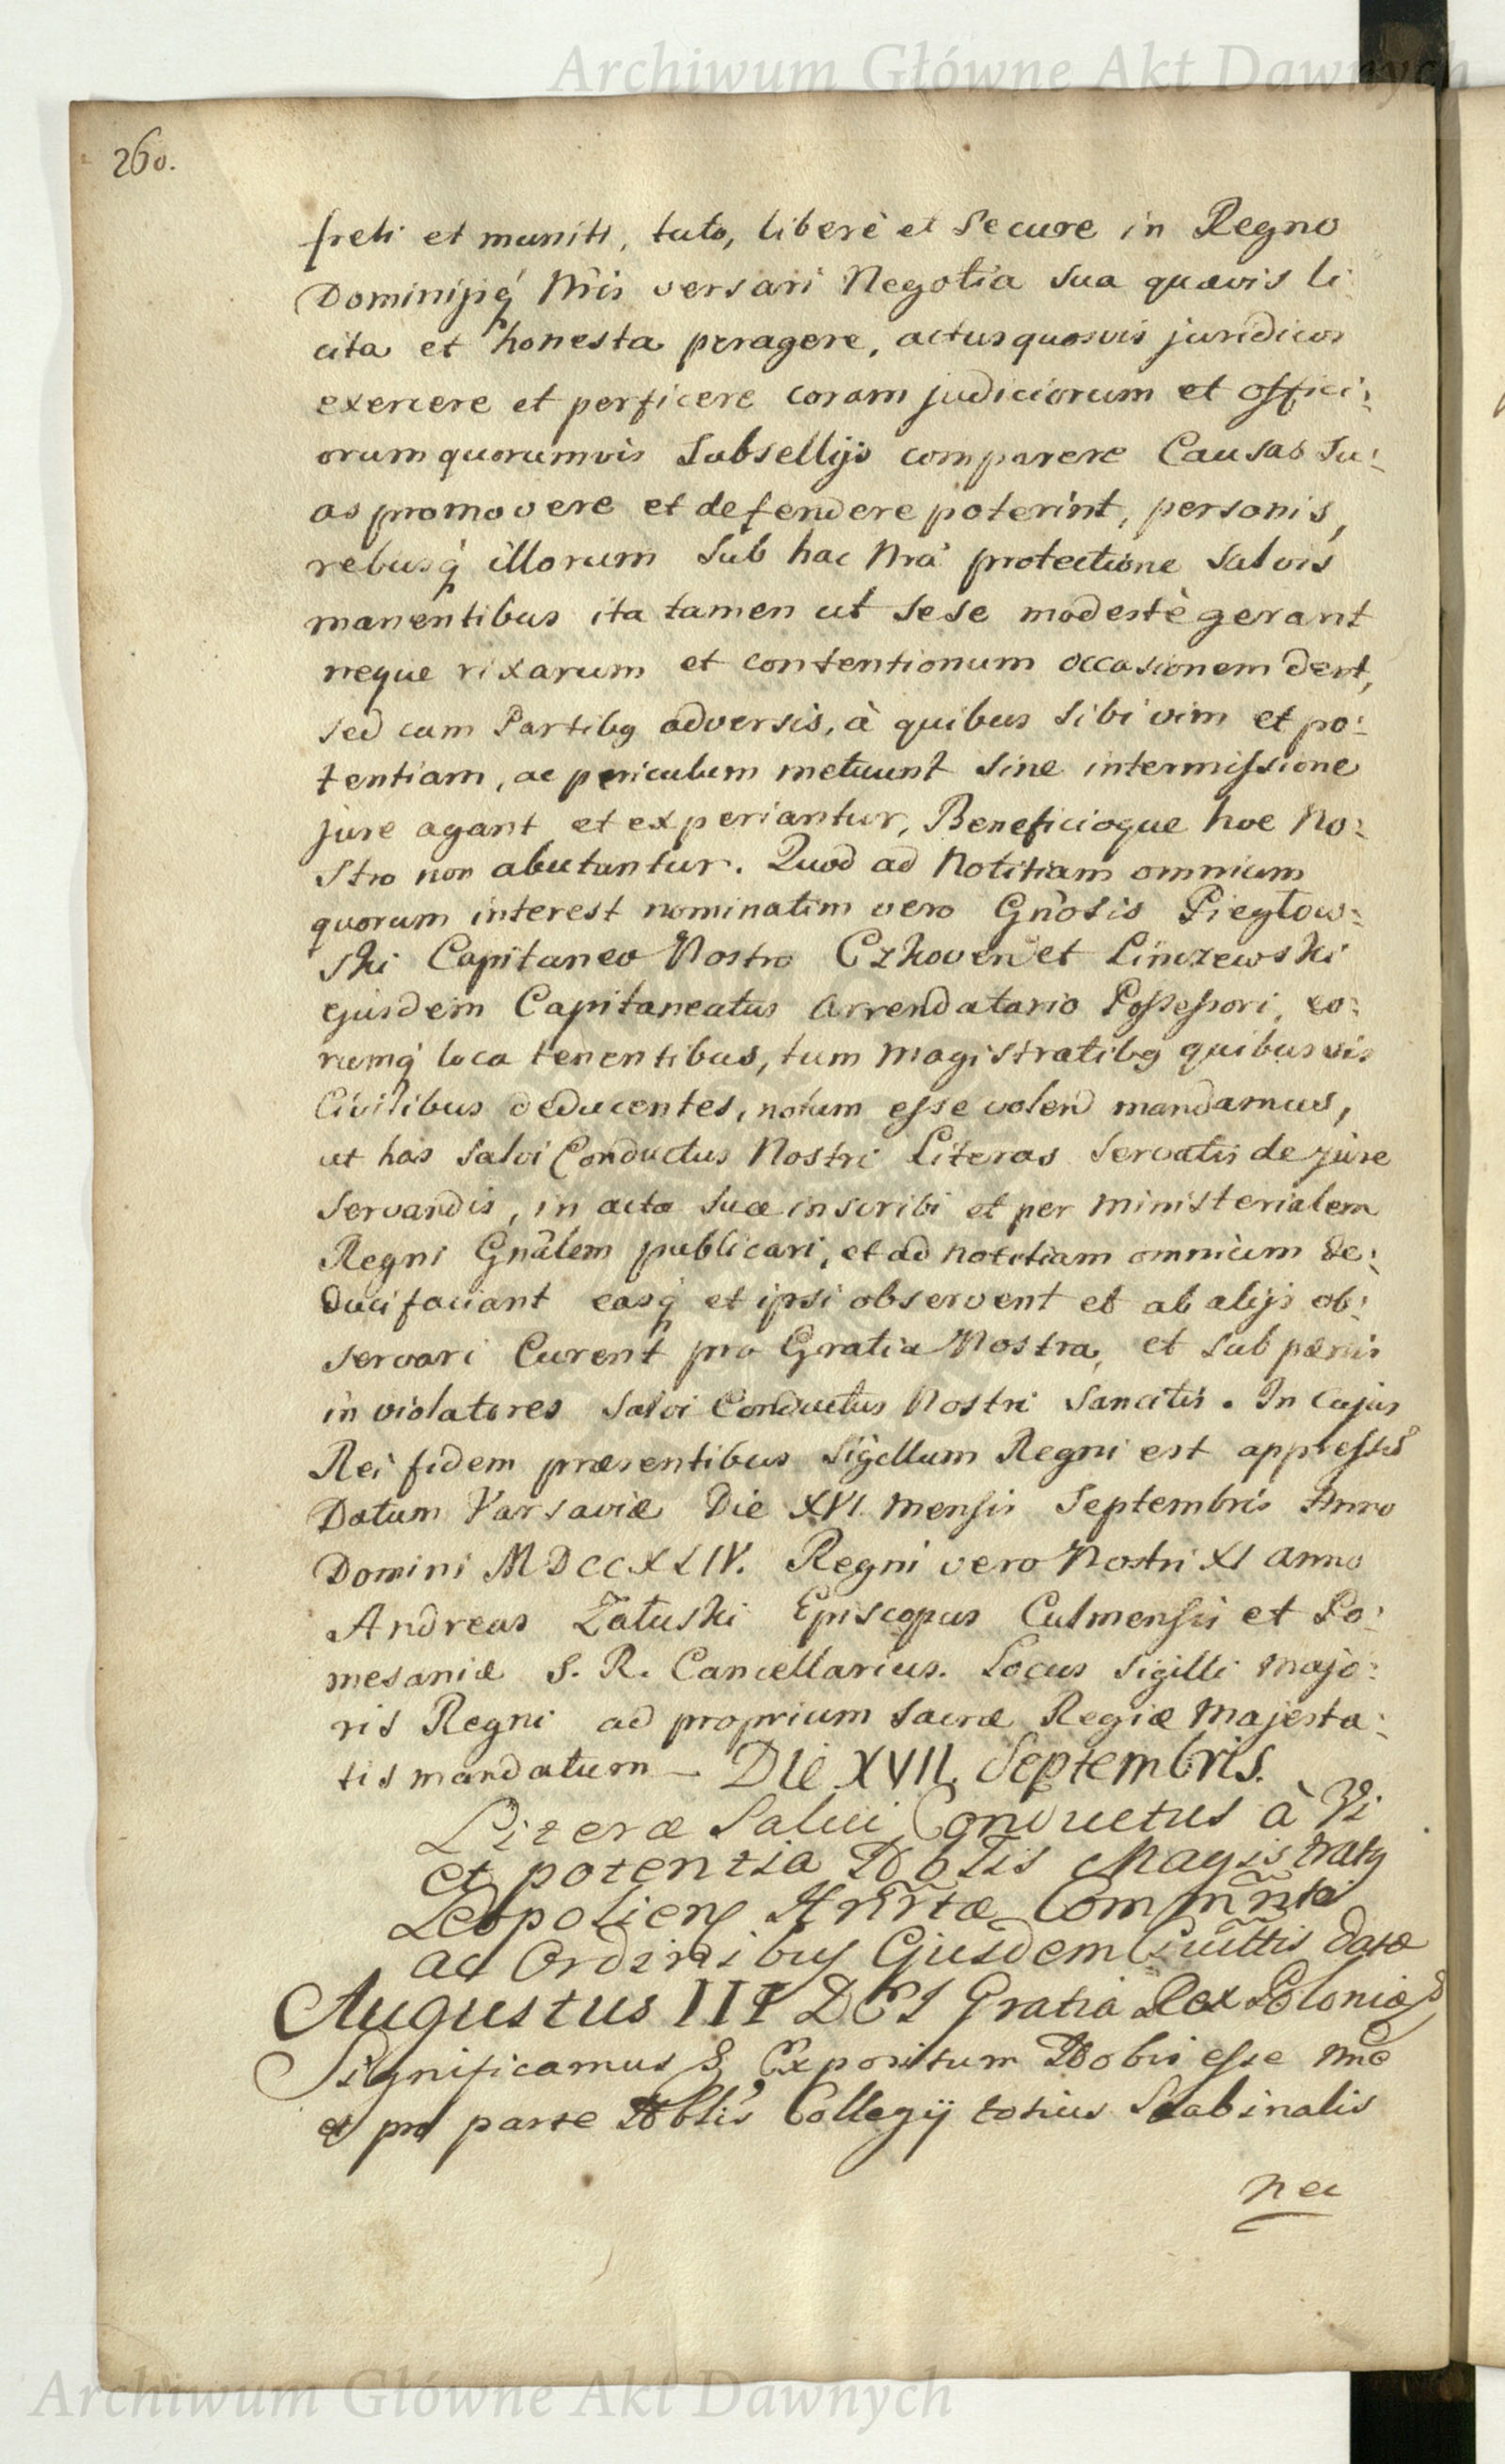 Archiwum Główne Akt Dawnych
260.
freti et muniti, tuto, liberè et Secure in Regno
Dominijsq́ Nr̃is versari Negotia sua quævis li:
cita et honesta peragere, actus quosvis juridicos
exercere et perficere coram judiciorum et offici:
orum quorumvis Subsellijs comparere Causas Su:
as promovere et defendere poterint, personis,
rebusq́ illorum Sub hac Nrã protectione Salvis
manentibus ita tamen ut Sese modestè gerant
neque rixarum et contentionum occasionem dent,
sed cum Partibg adversis, à quibus Sibi vim et po:
tentiam, ac periculum metuunt Sine intermissione
jure agant et experiantur, Beneficioque hoc No:
stro non abutantur. Quod ad Notitiam omnium
quorum interest nominatim vero Gñosis Piegłow:
ski Capitaneo Nostro Czhoven et Linczewski
ejusdem Capitaneatus Arrendatario Possessori, eo:
rumq́ loca tenentibus, tum Magistratibg quibusvis
Civilibus deducentes, notum esse volend mandamus,
ut has Salvi Conductus Nostri Literas Servatis de jure
Servandis, in acta Sua inscribi et per Ministerialem
Regni Gnãlem publicari, et ad notitiam omnium de:
duci faciant easq́ et ipsi observent et ab alijs ob:
servari Curent pro Gratia Nostra, et Sub pænis
in violatores Salvi Conductus Nostri Sancitis. In Cujus
Rei fidem præsentibus Sigillum Regni est appressũ
Datum Varsaviæ Die XVI. Mensis Septembris Anno
Domini MDCCXLIV. Regni vero Nostri XI anno
Andreas Załuski Episcopus Culmensis et Po:
mesaniæ S. R. Cancellarius. Locus Sigilli Majo:
ris Regni ad proprium Sacræ Regiæ Majesta:
tis mandatum — Die XVII. Septembris.
Literæ Salvi Conductus à Vi
et potentia Nobĩlis Magistratg
Leopolien
ac Ordinibus Ejusdem Cĩvittis datæ
Augustus III DEI Gratia Rex Poloniæ
Significamus & Expositum Nobis esse Nnẽ
et pro parte Nbl̃is Collegij totius Scabinalis
nec
Archiwum Główne Akt Dawnych